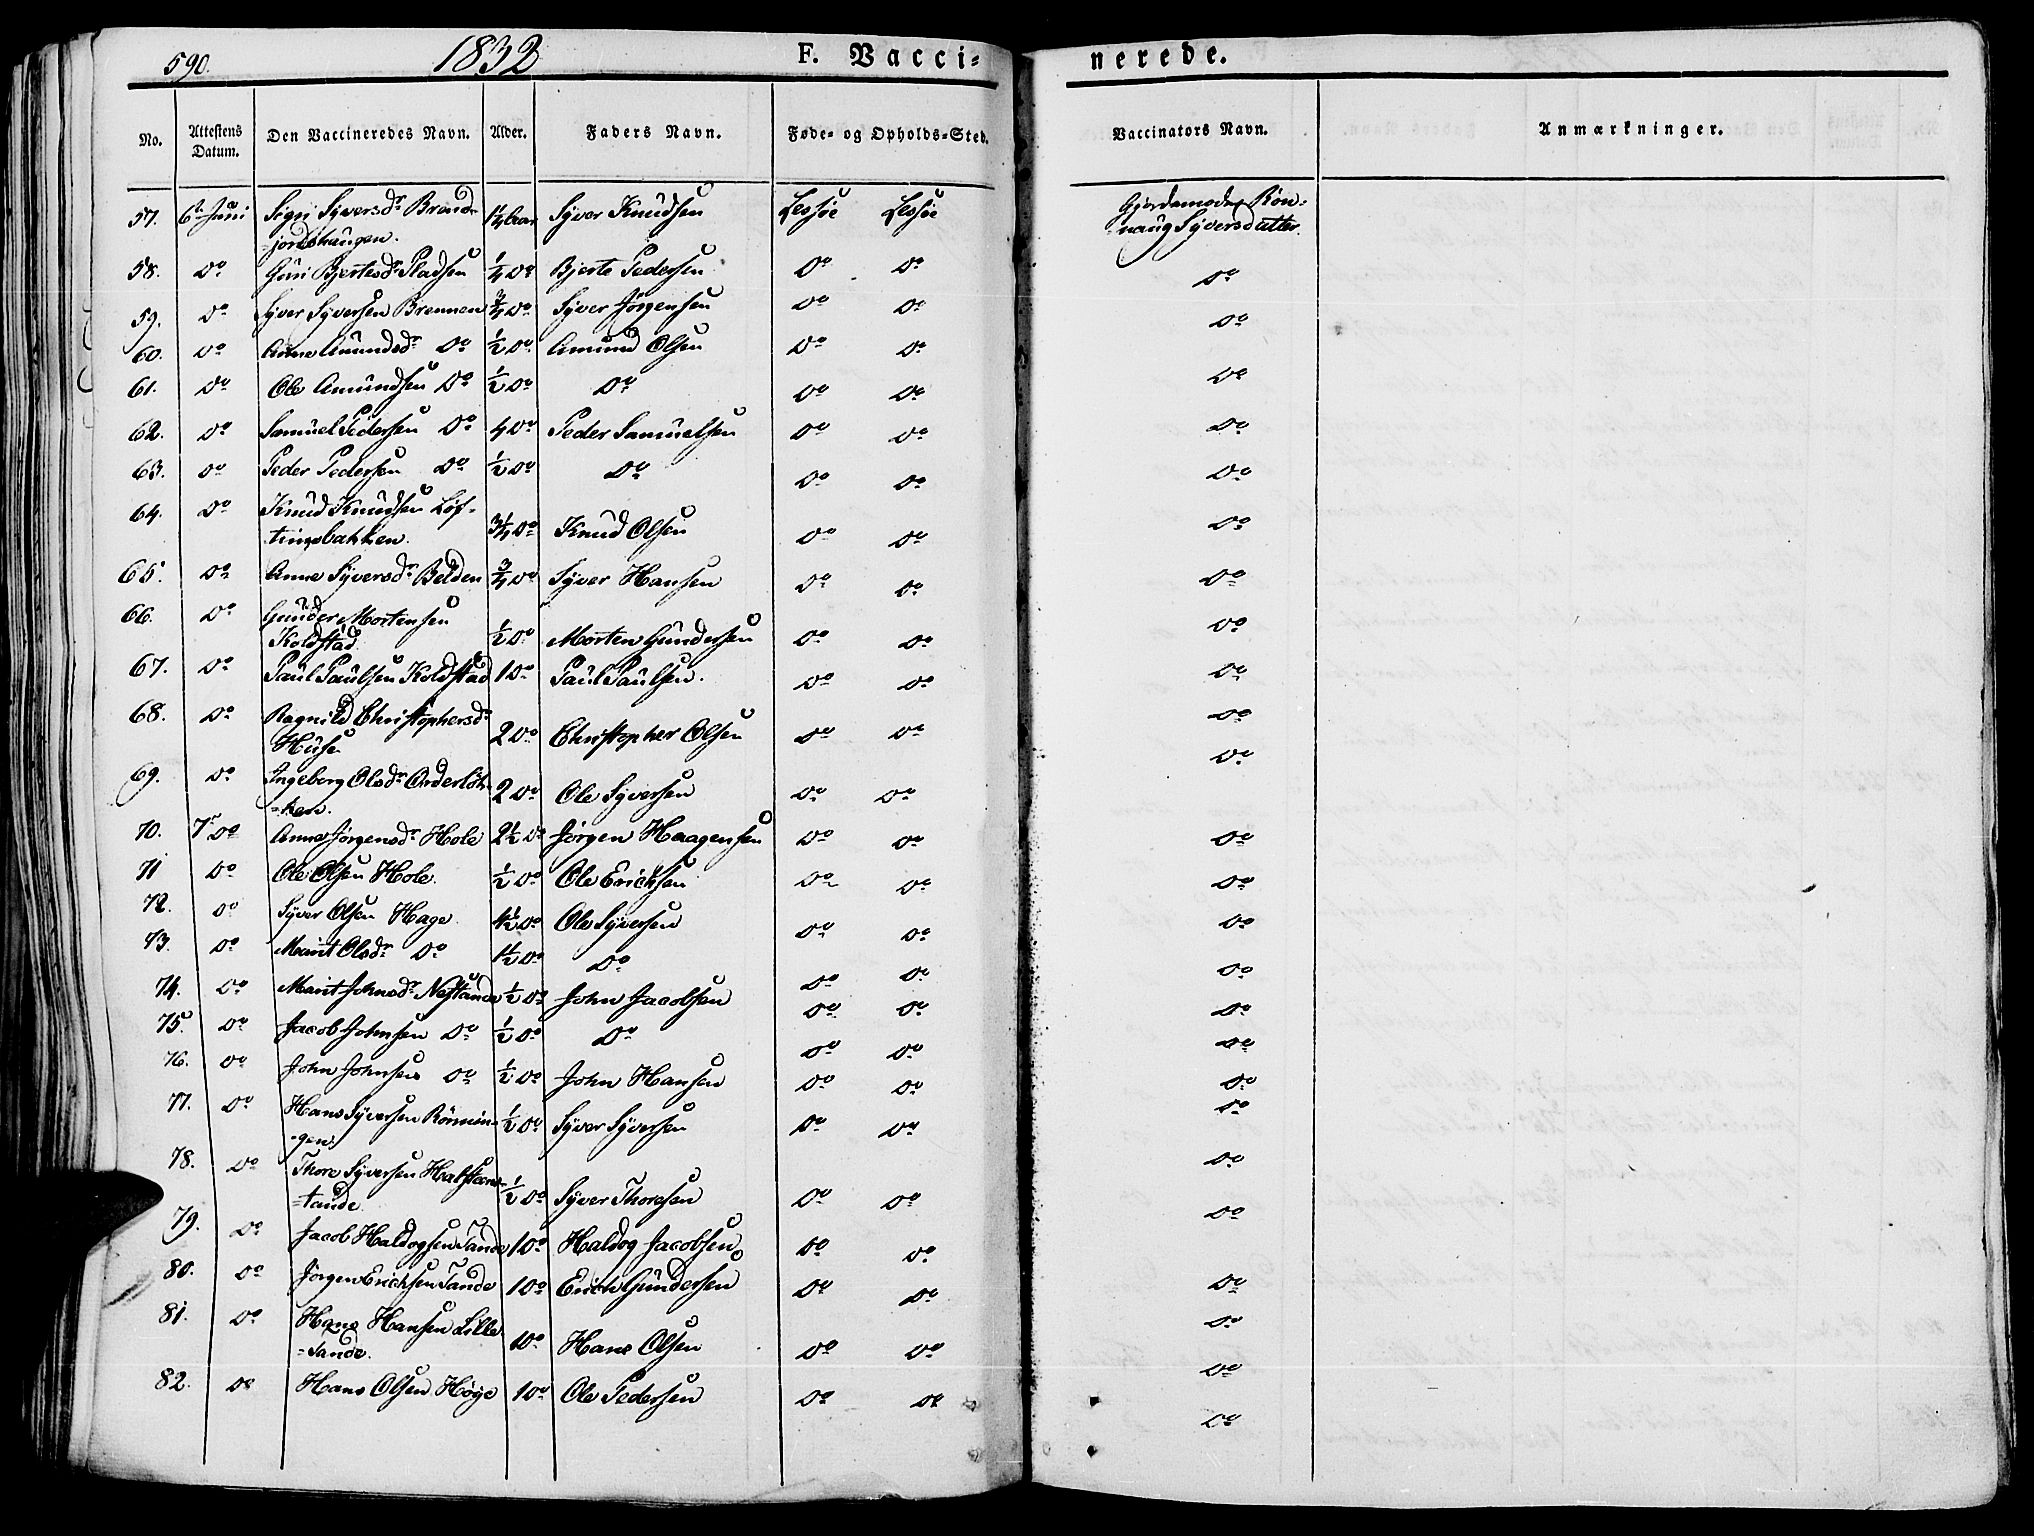 590. 1832 F. Vacci= nerede.
No. Attestens Datum. Den Vaccineredes Navn. Alder. Faders Navn. Føde= og Opholds=Sted. Vaccinators Navn. Anmærkninger.
57. 6te Juni Sigri Syversdr Brend= 1/4 Aar Syver Knudsen Lessøe Lessøe Gjordemoder Røn=
=jordshaugen. naug Syversdatter.
58. Do Guri Bjertesdr Pladsen 1/4 Do Bjerte Pedersen Do Do Do
59. Do Syver Syversen Brennen 3/4 Do Syver Jörgensen Do Do Do
60. Do Anne Amundsdr Do 1/2 Do Amund Olsen Do Do Do
61. Do Ole Amundsen Do 1/2 Do Do Do Do Do
62. Do Samuel Pedersen Do 4 Do Peder Samuelsen Do Do Do
63. Do Peder Pedersen Do 1/2 Do Do Do Do Do
64. Do Knud Knudsen Löf=
tingsbakken. 3/4 Do Knud Olsen Do Do Do
65. Do Anne Syversdr Belden 3/4 Do Syver Hansen Do Do Do
66. Do Gunder Mortensen
Koldstad 1/2 Do Morten Gundersen Do Do Do
67. Do Paul Paulsen Koldstad 1 Do Paul Paulsen. Do Do Do
68. Do Ragnild Christophersdr
Huse 2 Do Christopher Olsen Do Do Do
69. Do Ingeborg Olsdr Anderlök=
=ken. 2 Do Ole Syversen Do Do Do
70. 7de Do Anne Jörgensdr Hole 2 1/2 Do Jörgen Haagensen Do Do Do
71 Do Ole Olsen Hole. 1/2 Do Ole Ericksen Do Do Do
72. Do Syver Olsen Hage. 4 1/2 Do Ole Syversen Do Do Do
73. Do Marit Olsdr Do 1 1/2 Do Do Do Do Do
74. Do Marit Johnsdr Nestande 1/2 Do John Jacobsen Do Do Do
75. Do Jacob Johnsen Do 1/2 Do Do Do Do Do
76. Do John Johnsen Do 1/2 Do John Hansen Do Do Do
77. Do Hans Syversen Rönnin=
=gen. 1/2 Do Syver Syversen Do Do Do
78. Do Thore Syversen Halsteen=
=tande 1/2 Do Syver Thoresen Do Do Do
79. Do Jacob Haldogsen Tande 1 Do Haldog Jacobsen Do Do Do
80. Do Jörgen Ericksen Tande 1 Do Erich Gundersen Do Do Do
81. Do Hans Hansen Lille
=Tande. 1 Do Hans Olsen Do Do Do
82. Do Hans Olsen Høye 1 Do Ole Pedersen Do Do Do